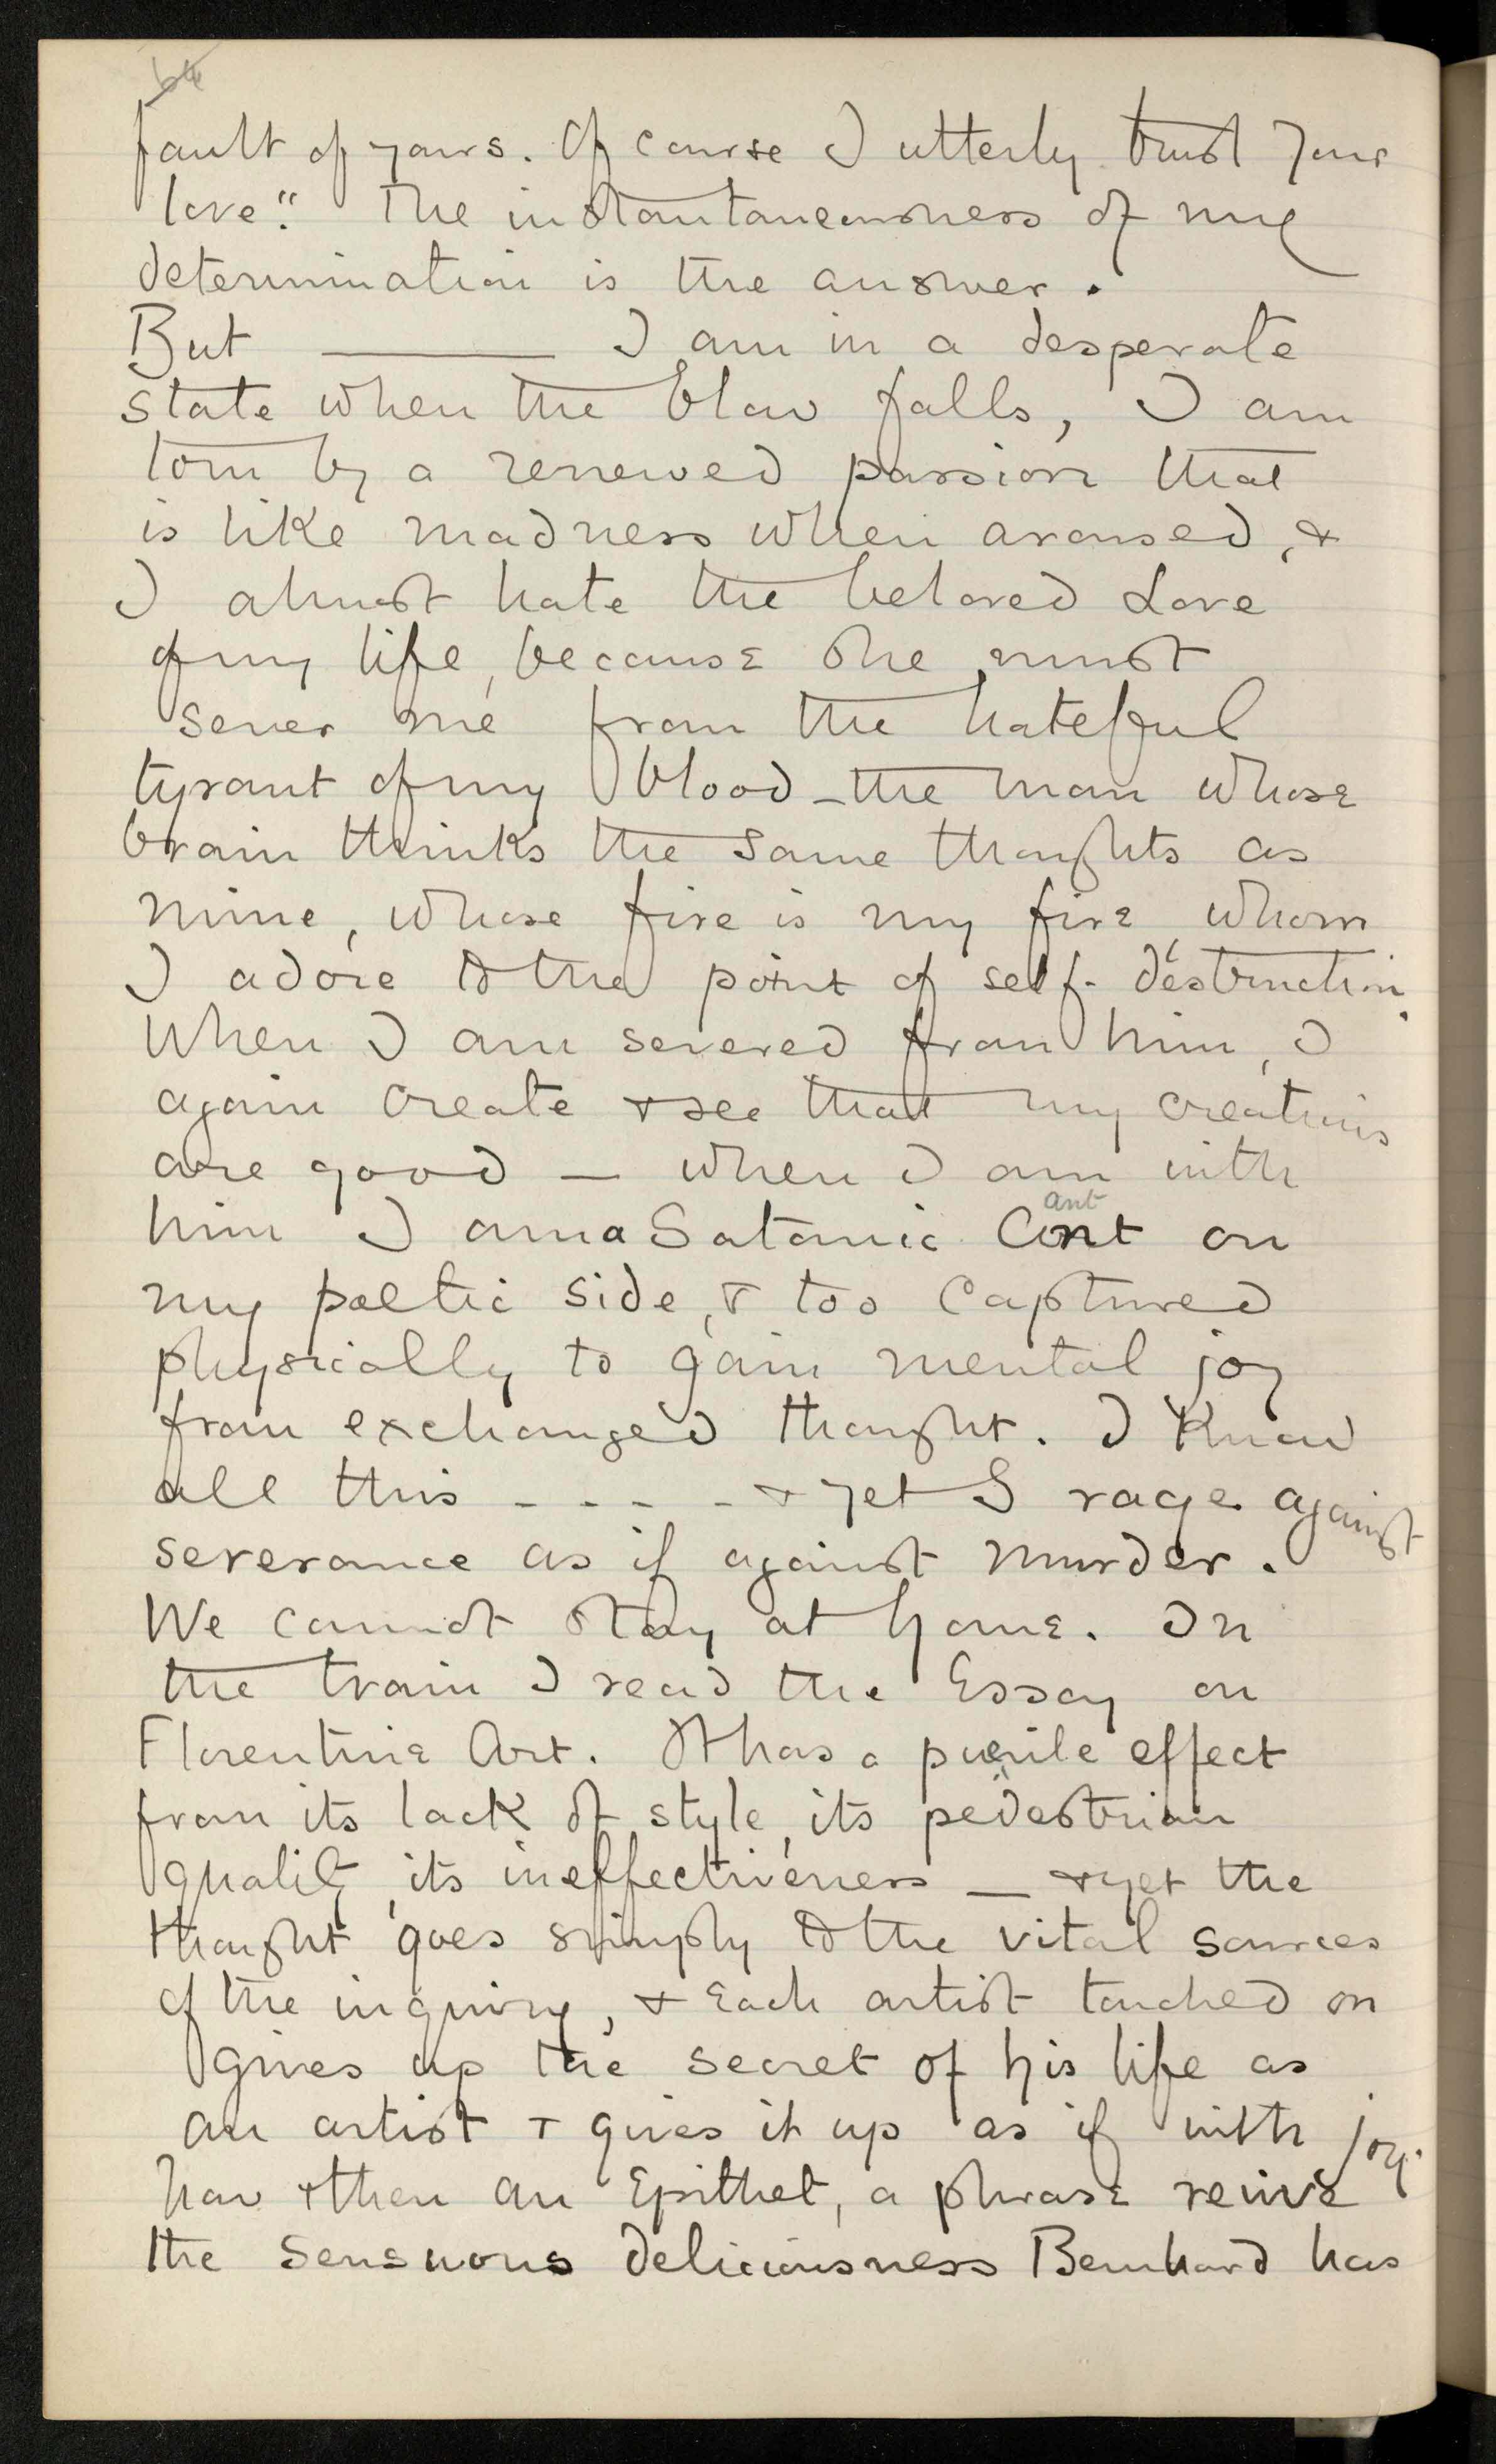 64
fault of yours. Of course I utterly trust your
love". The instantaneousness of my
determination is the answer.
But ——— I am in a desperate
state when the blow falls, I am
torn by a renewed passion that
is like madness when aroused, &
I almost hate the beloved Love
of my life, because she must
sever me from the hateful
tyrant of my blood – the man whose
brain thinks the same thoughts as
mine, whose fire is my fire, whom
I adore to the point of self-destruction.
When I am severed from him, I
again create & see that my creations
are good — when I am with
him I am a Satanic Cant on
ant
my poetic side, & too captured
physically to gain mental joy
from exchanged thought. I know
all this - - - - & yet I rage against
severance as if against murder.
We cannot stay at home. In
the train I read the Essay on
Florentine Art. It has a puerile effect
from its lack of style, its pedestrian
quality, its ineffectiveness — & yet the
thought goes simply to the vital sources
of the inquiry, & Each artist touched on
gives up the secret of his life as
an artist & gives it up as if with joy.
Now & then an Epithet, a phrase revive
the sensuous deliciousness Bernhard has